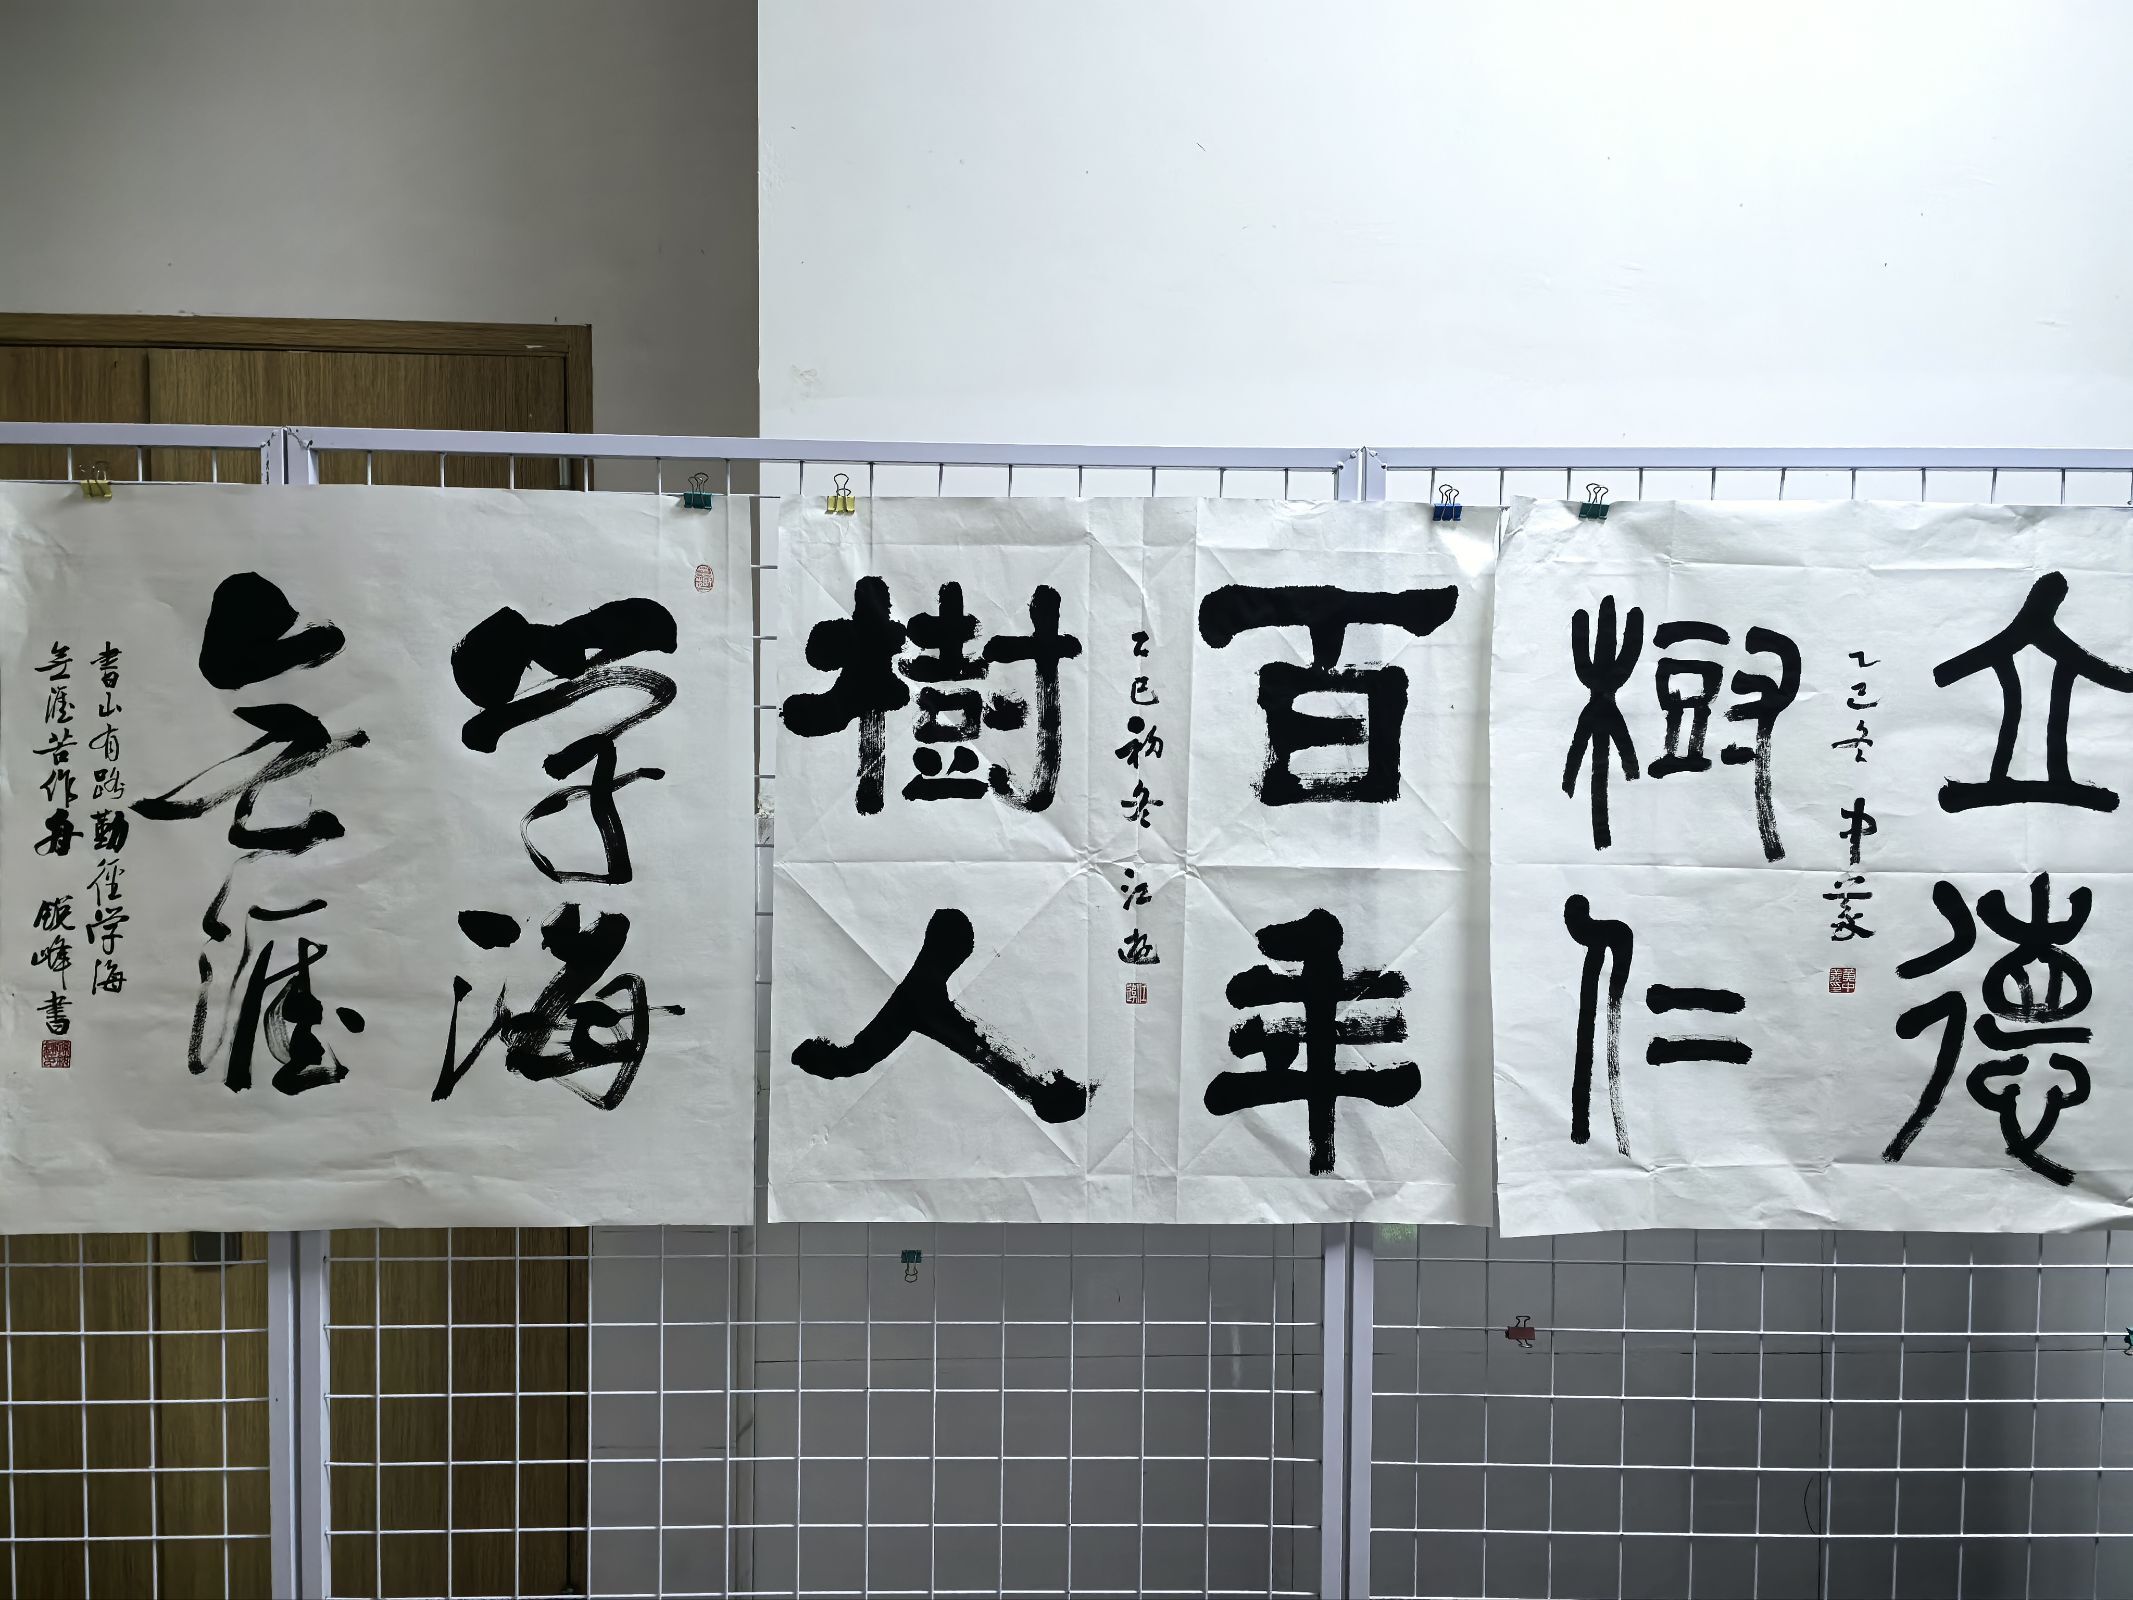 立德
樹仁
乙巳冬 中義
百年
樹人
乙巳初冬 江遊
学海
無涯
書山有路勤徑学海
無涯苦作舟 鋭峰書